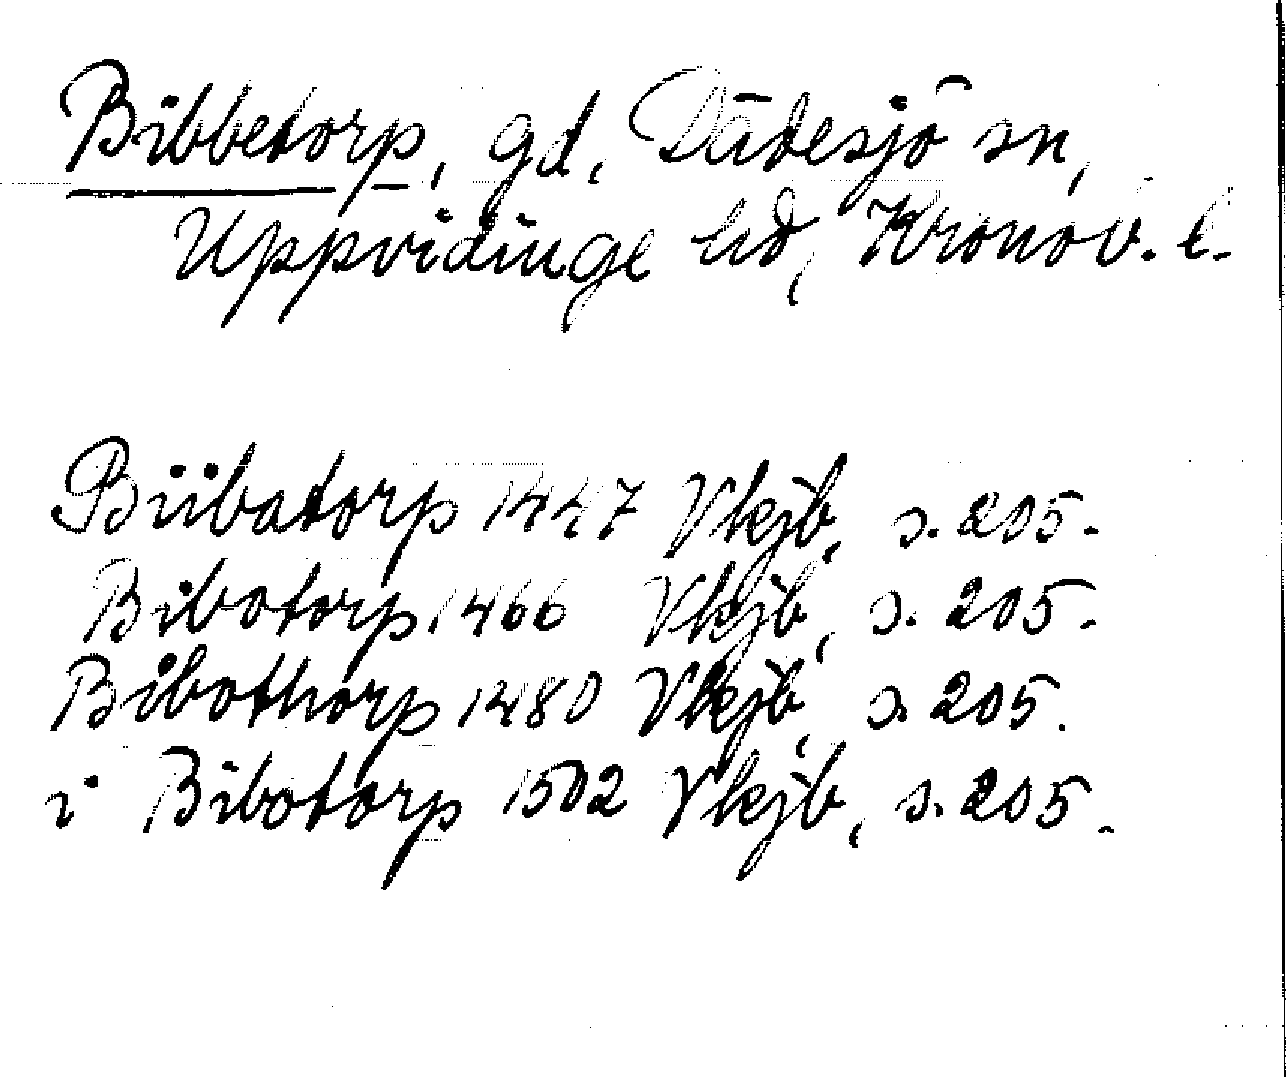 Bibbetorp, gd, Dädesjö sn,
Uppvidinge hd, Kronob. l.
Biibatorp 1447 Vkjb, s. 205.
Bibotorp 1466 Vkjb, s. 205.
Bibothorp 1480 Vkjb, s. 205.
i Bibotorp 1502 Vkjb, s. 205.